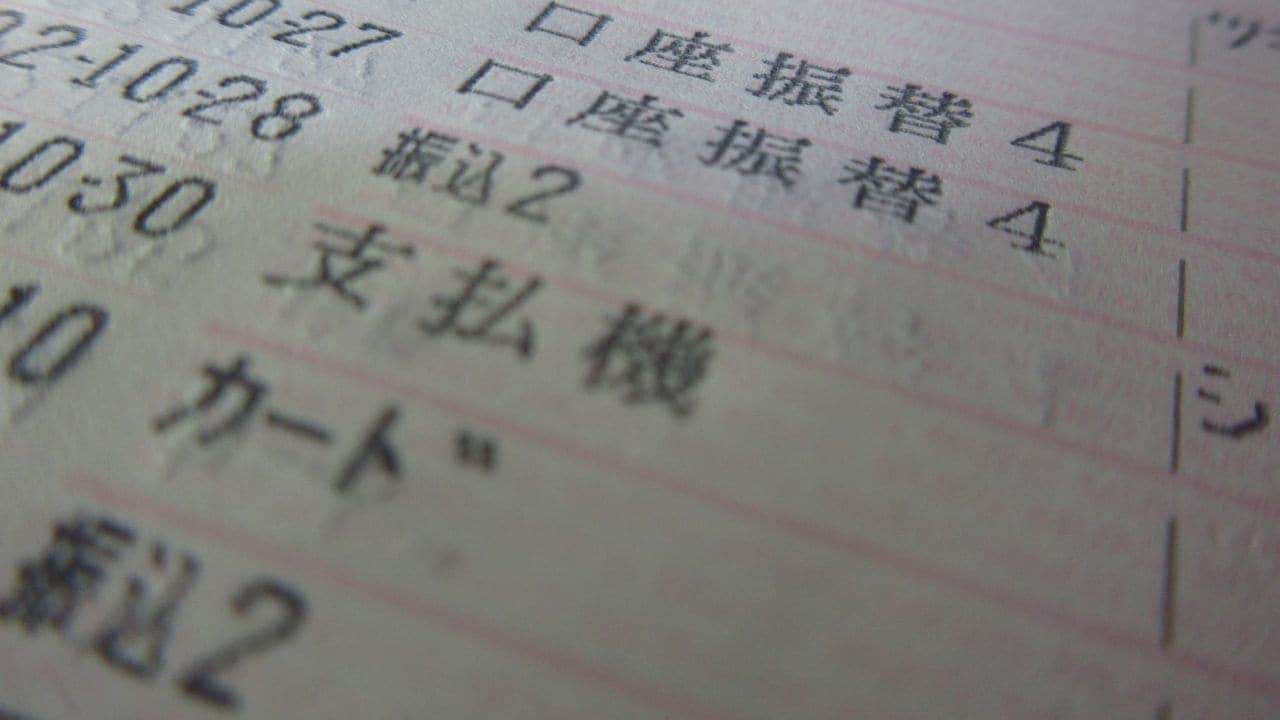 ツ
口座振替4
10-27 口座振替4
2-10-28 振込2 シ
10-30 支払機
10 カード
振込2